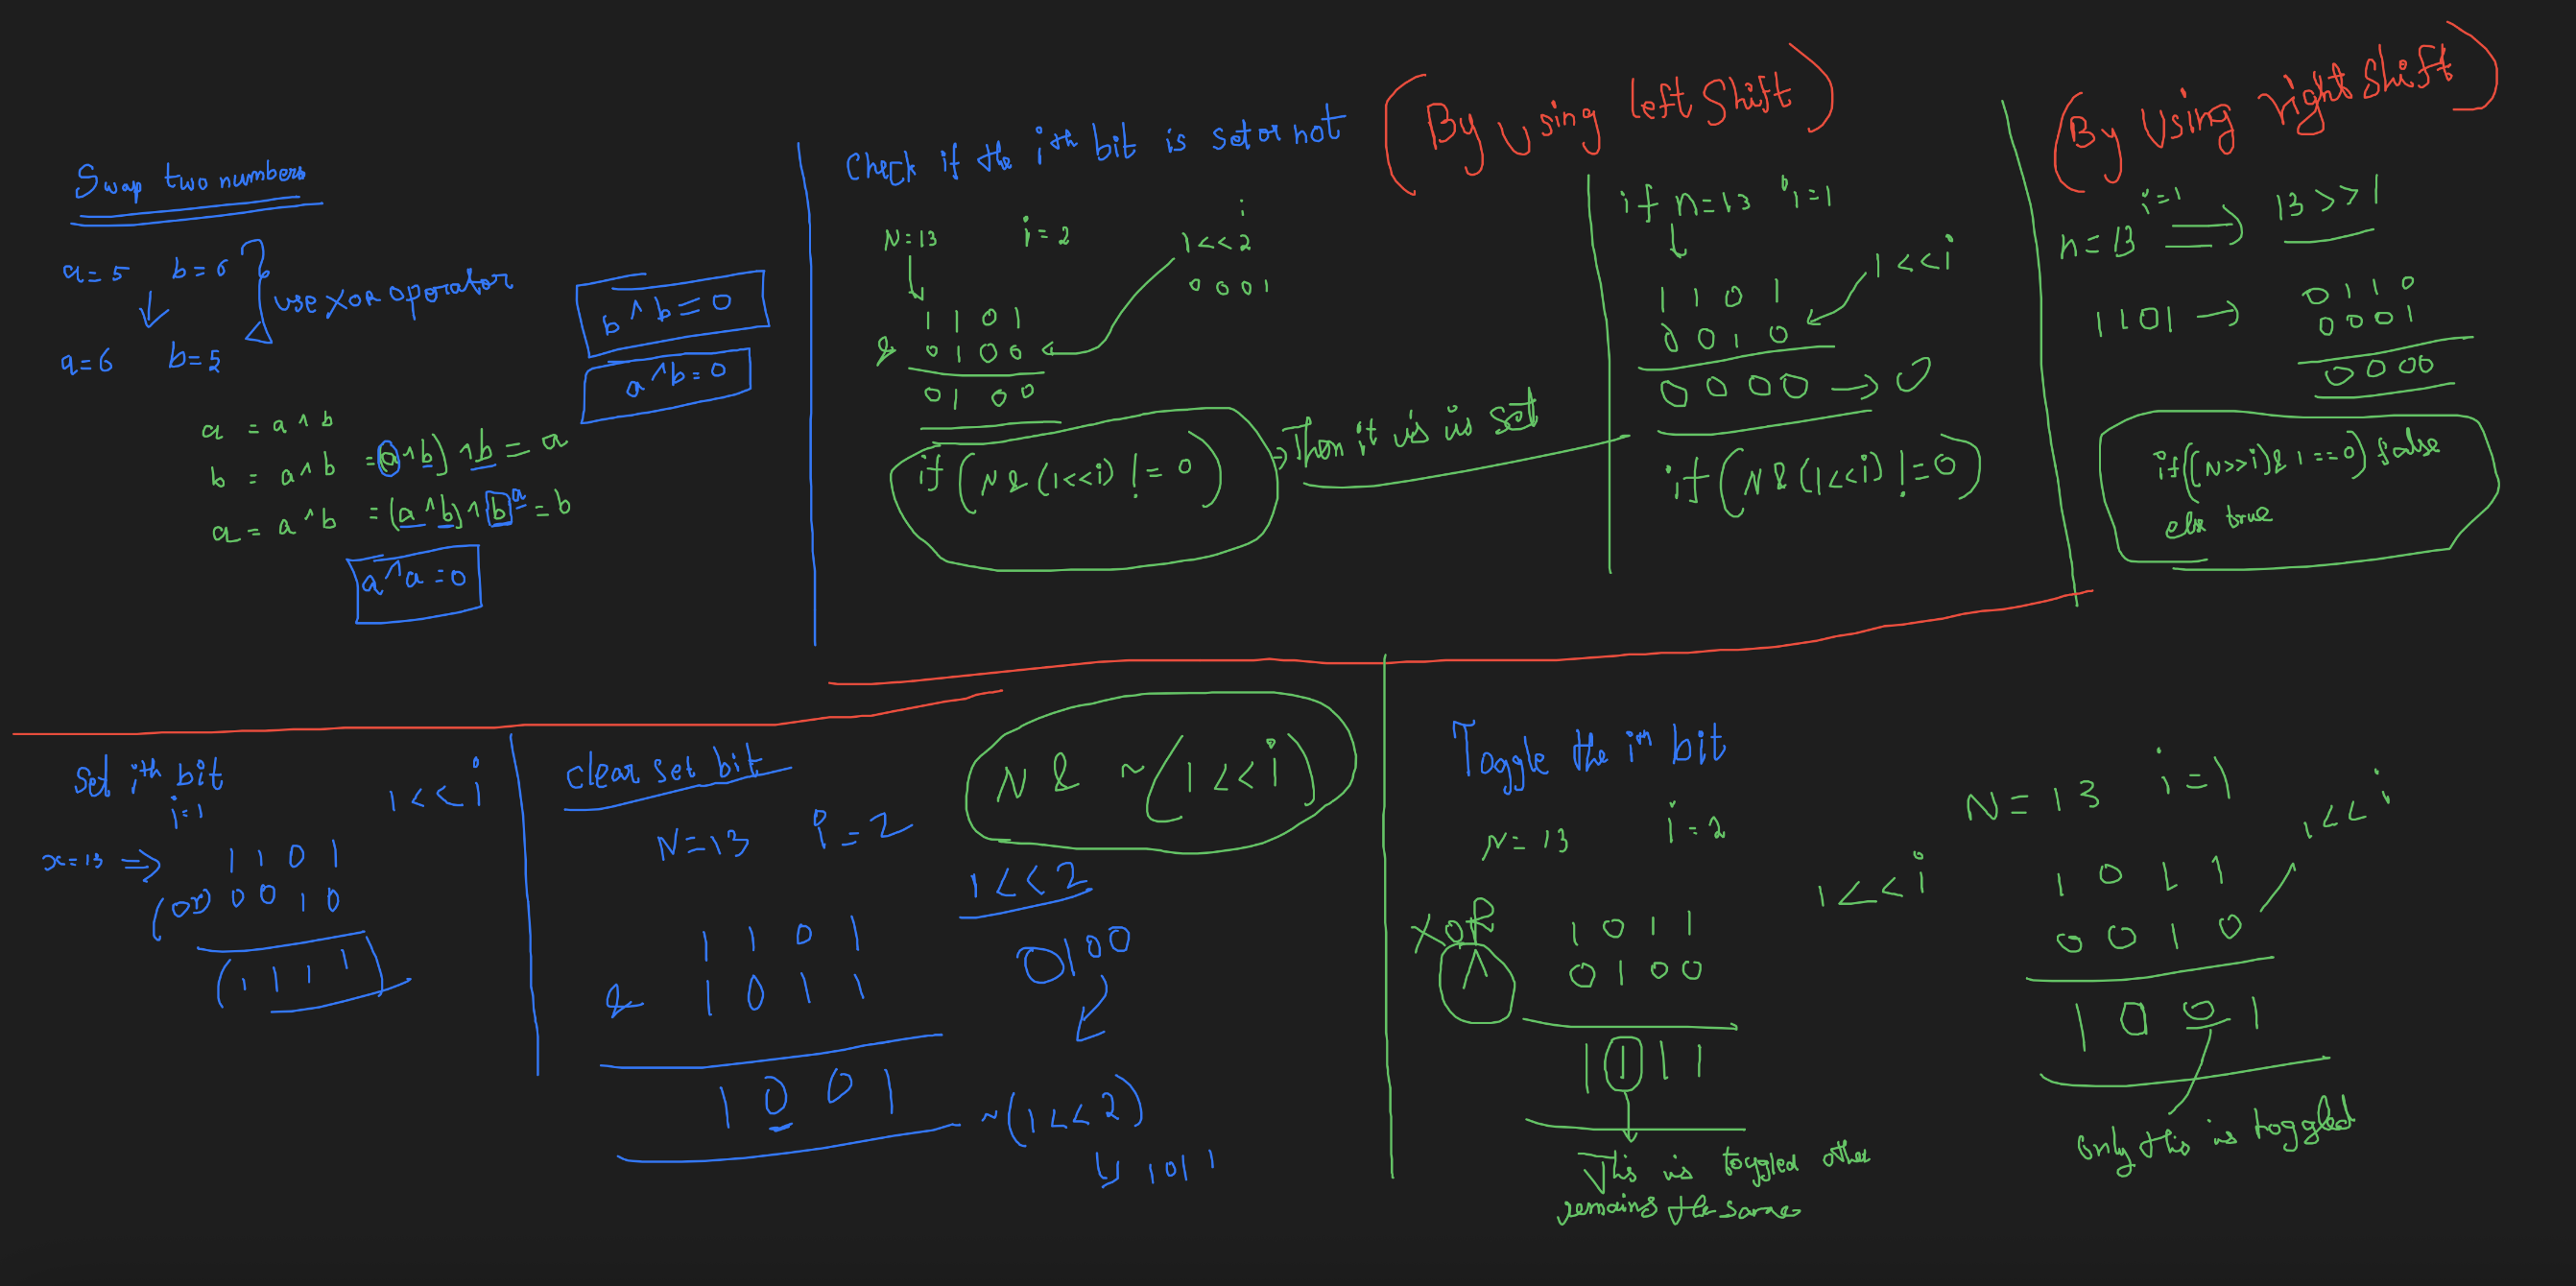 Swap two numbers
a=5 b=6
use XOR operator
a=6 b=5
b^b=0
a^b=0
a = a^b
b = a^b =(a^b)^b = a
a = a^b =(a^b)^b a = b
a^a=0
Check if the ith bit is set or not (By Using left Shift)
N=13 i=2
i
1<<2
0001
1101
& 0100
0100
if (N&(1<<i) != 0) => Then it is is set
if n=13 i=1
1<<i
1101
0010
0000 → 0
if (N&(1<<i) != 0)
(By Using right Shift)
n=13 i=1 => 13>>1
1101 → 0110
0001
0000
if((N>>i)&1==0) false
else true
Set ith bit
i=1
1<<i
x=13 => 1101
(or) 0010
(1111)
clear set bit
N & ~(1<<i)
N=13 i=2
1<<2
0100
1101
& 1011
1001
~(1<<2)
↳ 1011
Toggle the ith bit
N=13 i=2
1<<i
XOR 1011
^ 0100
1111
This is toggled other
remains the same
N=13 i=1
1<<i
1011
0010
1001
only this is toggled